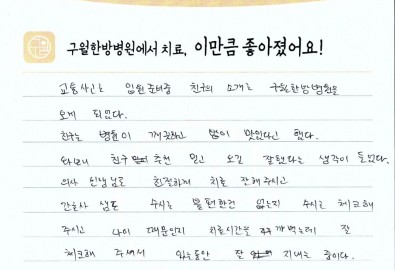 구월한방병원에서 치료, 이만큼 좋아졌어요!
교통사고로 입원 준비중 친구의 소개로 구월한방병원을
오게 되었다.
친구는 병원이 깨끗하고 밥이 맛있다고 했다.
와보니 친구 추천 믿고 오길 잘했다는 생각이 들었다.
의사 선생님도 친절하게 치료 잘해주시고
간호사 샘도 수시로 불편한건 없는지 수시로 체크해
주시고 나이 때문인지 치료시간을 까먹는데 잘
체크해 주셔서 있는동안 잘 지내는 중이다.